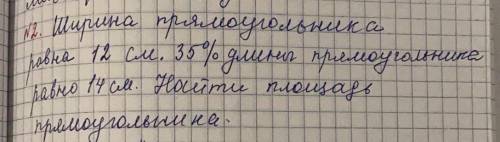 №2. Ширина прямоугольника
равна 12 см. 35% длины прямоугольника
равно 14 см. Найти площадь
прямоугольника.